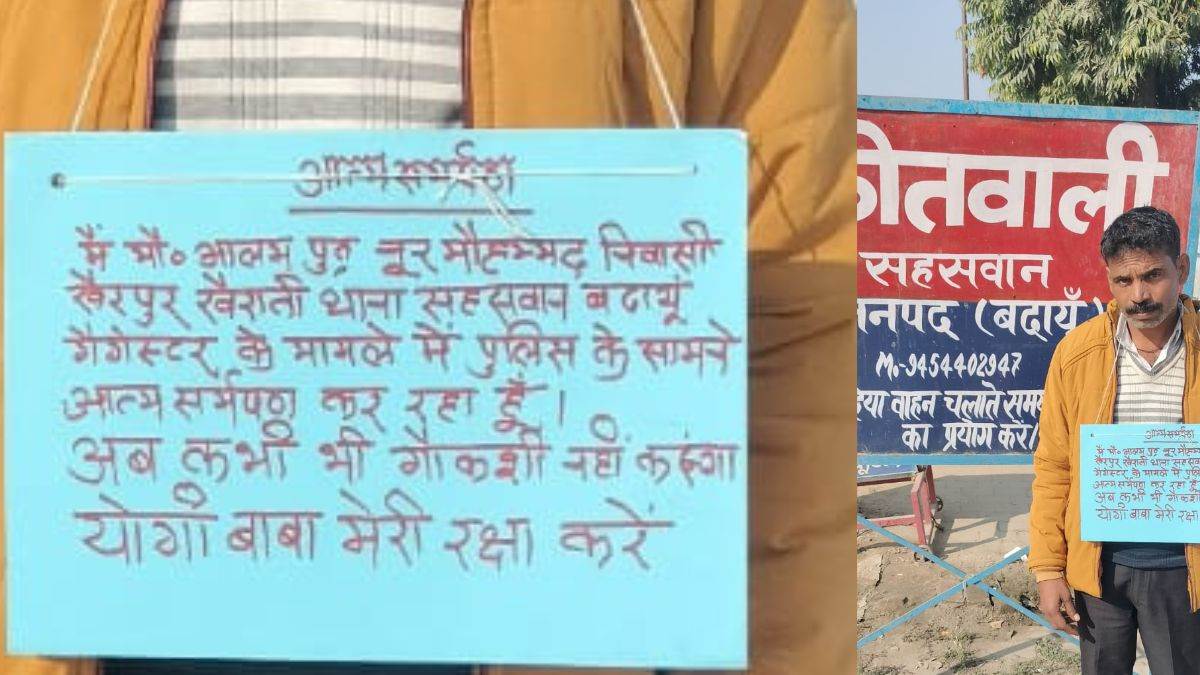 आत्म सर्मपण
मैं मौ० आलम पुत्र नूर मौहम्मद निवासी
खैरपुर खैराती थाना सहसवान बदायूं
गैगेस्टर के मामले में पुलिस के सामने
आत्म सर्मपण कर रहा हूँ।
अब कभी भी गौकशी नहीं करूंगा
योगी बाबा मेरी रक्षा करें
कोतवाली
सहसवान
नपद (बदायूँ)
M.-9454402947
या वाहन चलाते सम
का प्रयोग करें/
आत्म सर्मपण
मैं मौ० आलम पुत्र नूर मौहम्म
खैरपुर खैराती थाना सहसवान
गैगेस्टर के मामले में पुलि
आत्म सर्मपण कर रहा हूँ
अब कभी भी गौकशी
योगी बाबा मेरी रक्षा